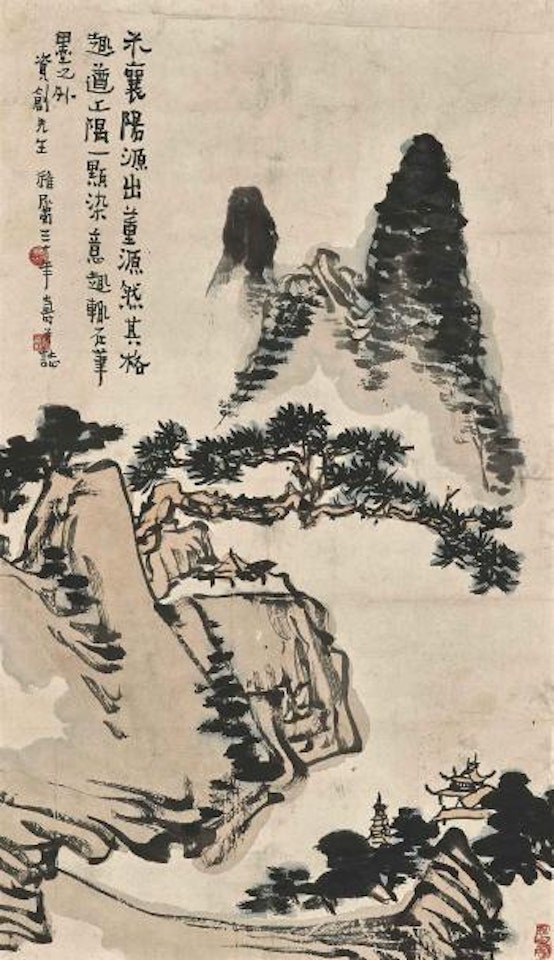 米襄陽源出董源然其格
趣遒上隅一點染意趣輒在筆
墨之外
資創先生 雅屬三年壽誌